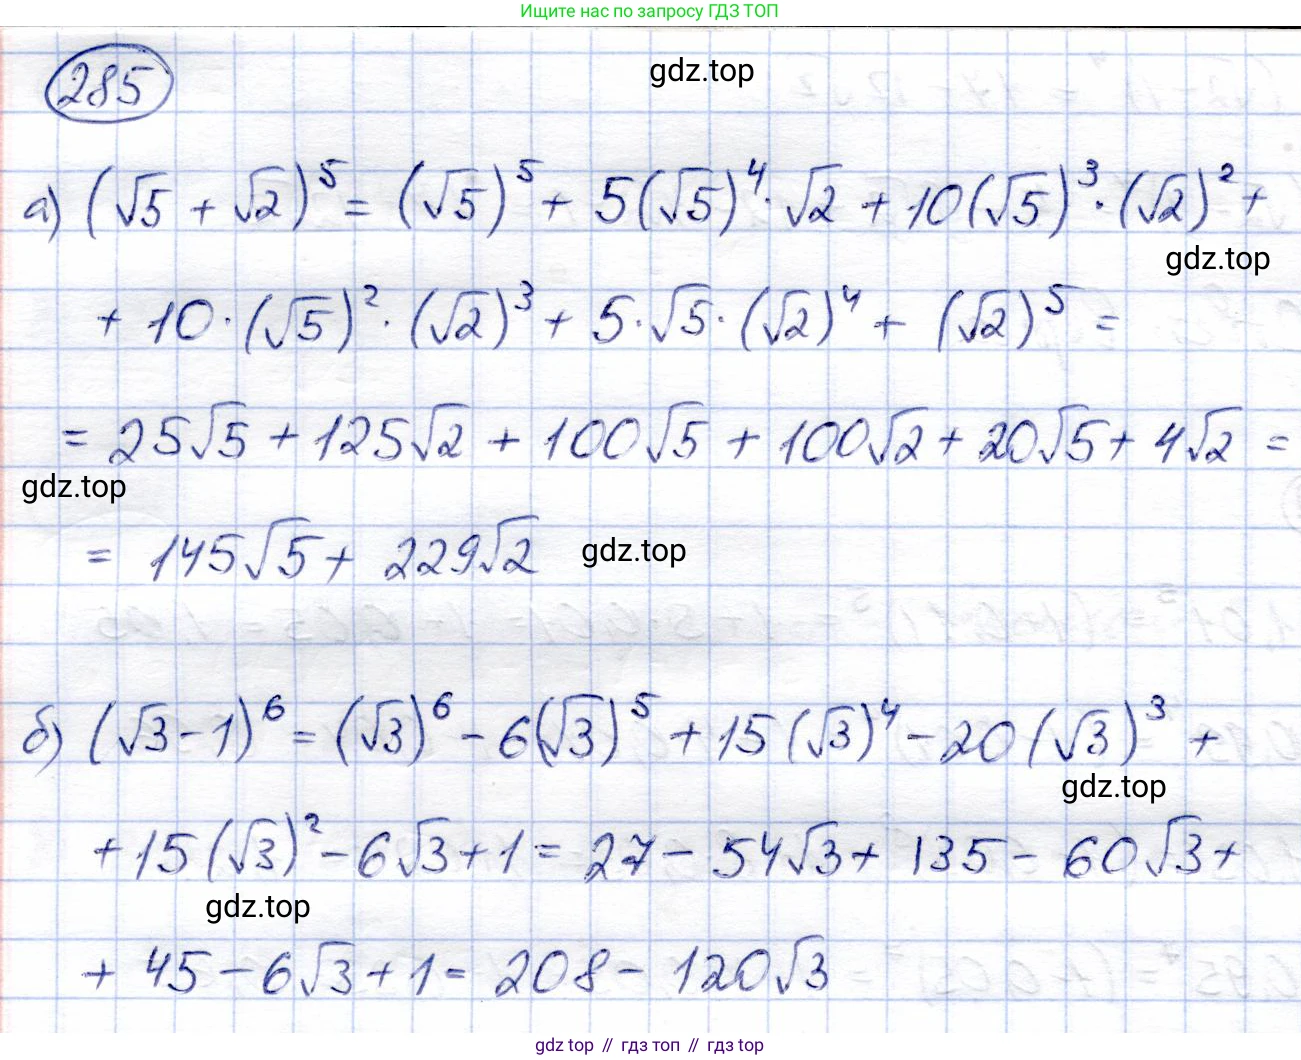 Ищите нас по запросу ГДЗ ТОП
285
gdz.top
а) (√5 + √2)⁵ = (√5)⁵ + 5(√5)⁴·√2 + 10(√5)³·(√2)² +
gdz.top
+ 10·(√5)²·(√2)³ + 5·√5·(√2)⁴ + (√2)⁵ =
= 25√5 + 125√2 + 100√5 + 100√2 + 20√5 + 4√2 =
gdz.top
= 145√5 + 229√2
gdz.top
б) (√3 - 1)⁶ = (√3)⁶ - 6(√3)⁵ + 15(√3)⁴ - 20(√3)³ +
gdz.top
+ 15(√3)² - 6√3 + 1 = 27 - 54√3 + 135 - 60√3 +
gdz.top
+ 45 - 6√3 + 1 = 208 - 120√3
gdz top // гдз топ // гдз top